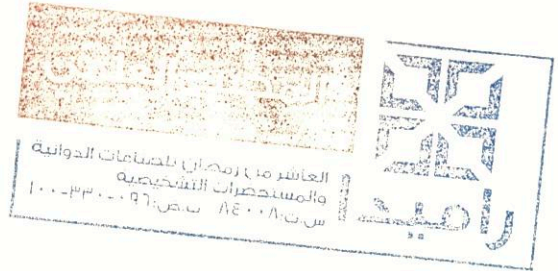 راميدا
العاشر من رمضان للصناعات الدوائية
والمستحضرات التشخيصية
س.ت:٨٤٠٠٨ ب.ض:٠٩٦-٣٣٠-١٠٠